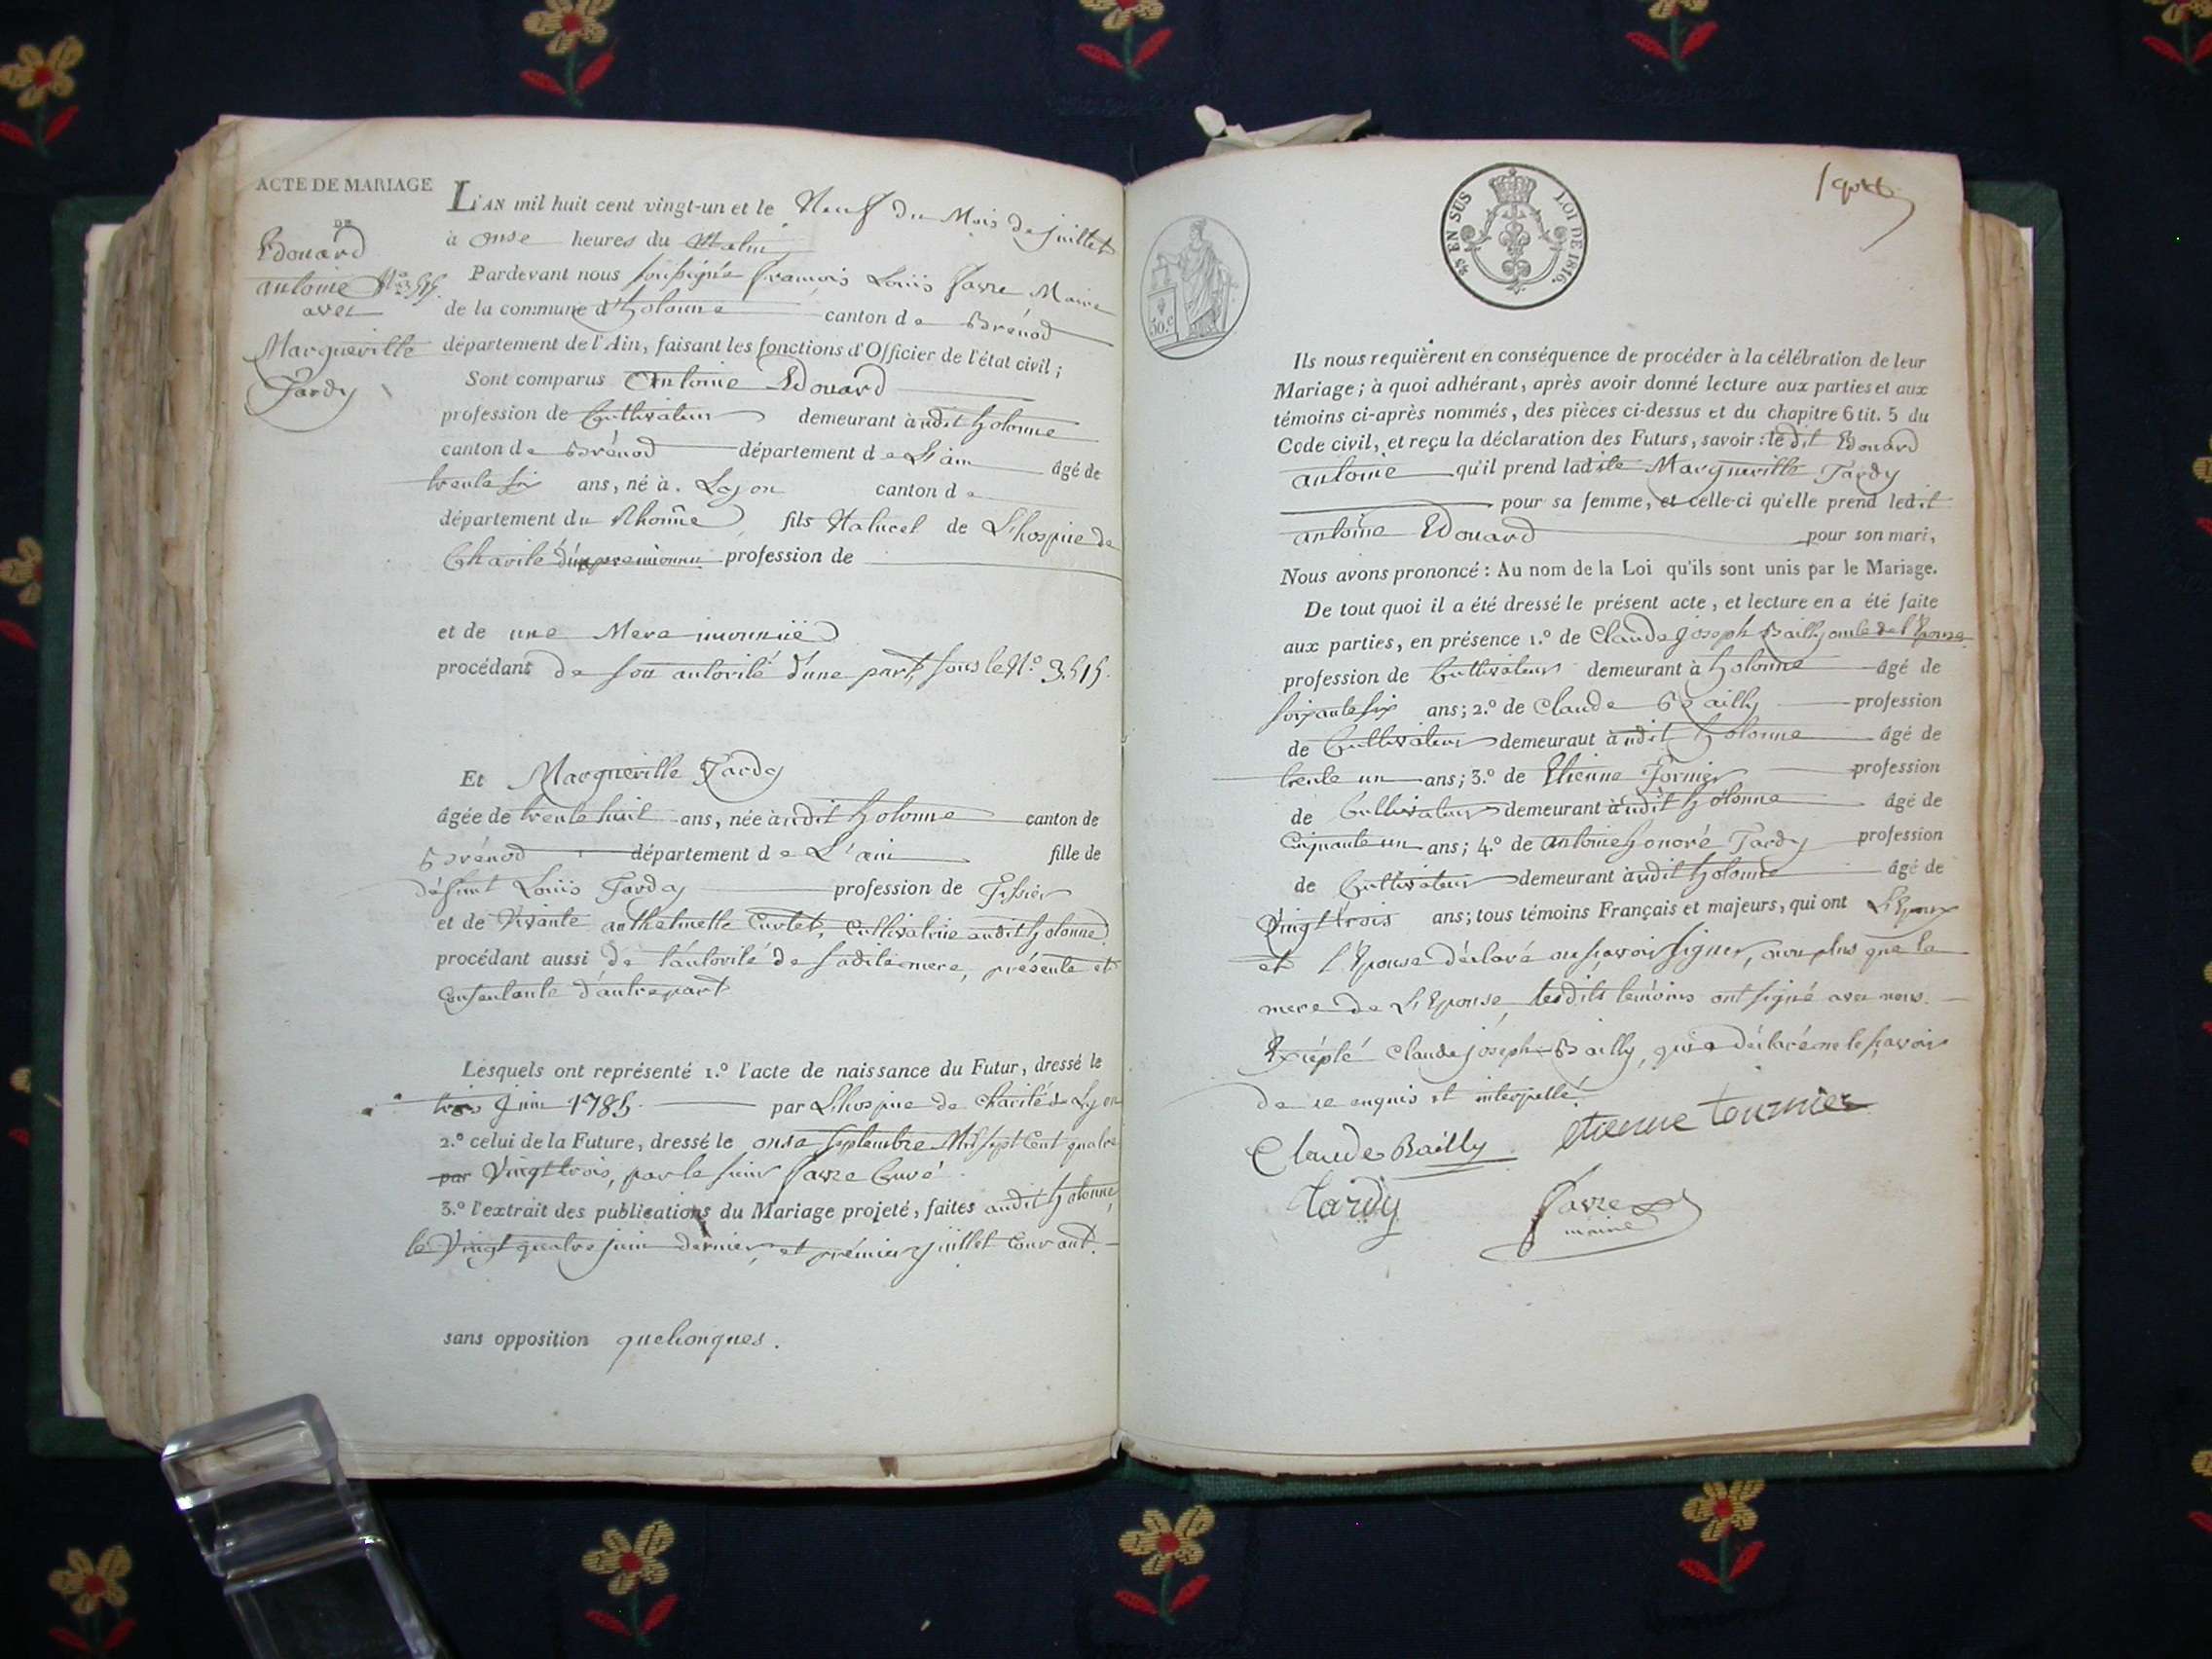 ACTE DE MARIAGE
DE
Edouard
antoine
avec
Margueritte
Tardy
L'AN mil huit cent vingt-un et le Neuf du Mois de juillet
à onse heures du Matin
Pardevant nous soussigné françois Louis favre Maire
de la commune d'hotonne canton de Brénod
département de l'Ain, faisant les fonctions d'Officier de l'état civil;
Sont comparus Antoine Edouard
profession de Cultivateur demeurant audit hotonne
canton de Brénod département de L'ain âgé de
trente six ans, né à Lyon canton de
département du Rhône fils Naturel de L'hospice de
Charité d'un pere inconnu profession de
et de une Mere inconnüe
procédant de son autorité d'une part, sous le N.º 3515.
Et Margueritte Tardy
âgée de trente huit ans, née audit hotonne canton de
Brénod département de L'ain fille de
défunt Louis Tardy profession de Tissier
et de Vivante anthelmette Curtet, Cultivatrice audit hotonne
procédant aussi de l'autorité de sadite mere, présente et
consentante d'autre part
Lesquels ont représenté 1.º l'acte de naissance du Futur, dressé le
trois Juin 1785 par L'hospice de Charité de Lyon
2.º celui de la Future, dressé le onse septembre Mil sept Cent quatre
par Vingt trois, par le sieur favre Curé
3.º l'extrait des publications du Mariage projeté, faites audit hotonne,
le Vingt quatre juin dernier, et prémier juillet Courant.
sans opposition quelconques.
45 EN SUS LOI DE 1816.
50.c
Ils nous requièrent en conséquence de procéder à la célébration de leur
Mariage; à quoi adhérant, après avoir donné lecture aux parties et aux
témoins ci-après nommés, des pièces ci-dessus et du chapitre 6 tit. 5 du
Code civil, et reçu la déclaration des Futurs, savoir: le dit Edouard
antoine qu'il prend ladite Margueritte Tardy
pour sa femme, et celle-ci qu'elle prend ledit
antoine Edouard pour son mari,
Nous avons prononcé: Au nom de la Loi qu'ils sont unis par le Mariage.
De tout quoi il a été dressé le présent acte, et lecture en a été faite
aux parties, en présence 1.º de Claude joseph Bailly oncle de l'Epouse
profession de Cultivateur demeurant à hotonne âgé de
soixante six ans; 2.º de Claude Bailly profession
de Cultivateur demeurant audit hotonne âgé de
trente un ans; 3.º de Etienne Tornier profession
de Cultivateur demeurant audit hotonne âgé de
Cinquante un ans; 4.º de antoine honoré Tardy profession
de Cultivateur demeurant audit hotonne âgé de
Vingt trois ans; tous témoins Français et majeurs, qui ont L'Epoux
et l'Epouse déclaré ne sçavoir signer, non plus que la
mere de L'Epouse, lesdits temoins ont signé avec nous.
Excépté Claude joseph Bailly, qui a déclaré ne le sçavoir
de ce enquis et interpellé.
Claude Bailly etienne tournier
tardy favre
maire